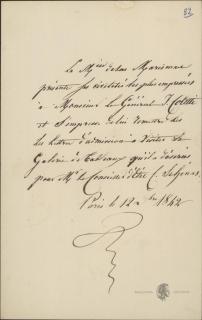 82
Le M.quis de las Marismas
présente ses civilités les plus empressées
à Monsieur le Général J. Colette
et s'empresse de lui remettre
les lettres d'admission à visiter sa
Galerie de Tableaux qu'il a désirées
pour Mr. le Conseiller d'État C.
Paris le 12 1842